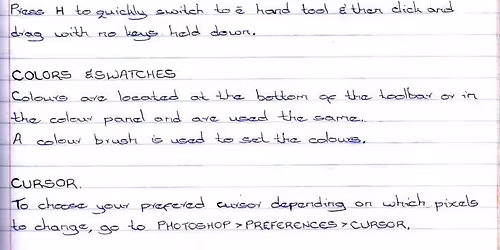 Press H to quickly switch to ē hand tool & then click and
drag with no keys held down.
COLORS & SWATCHES
Colours are located at the bottom of the toolbar or in
the colour panel and are used the same.
A colour brush is used to set the colours.
CURSOR.
To choose your prefered cursor depending on which pixels
to change, go to PHOTOSHOP > PREFERENCES > CURSOR.